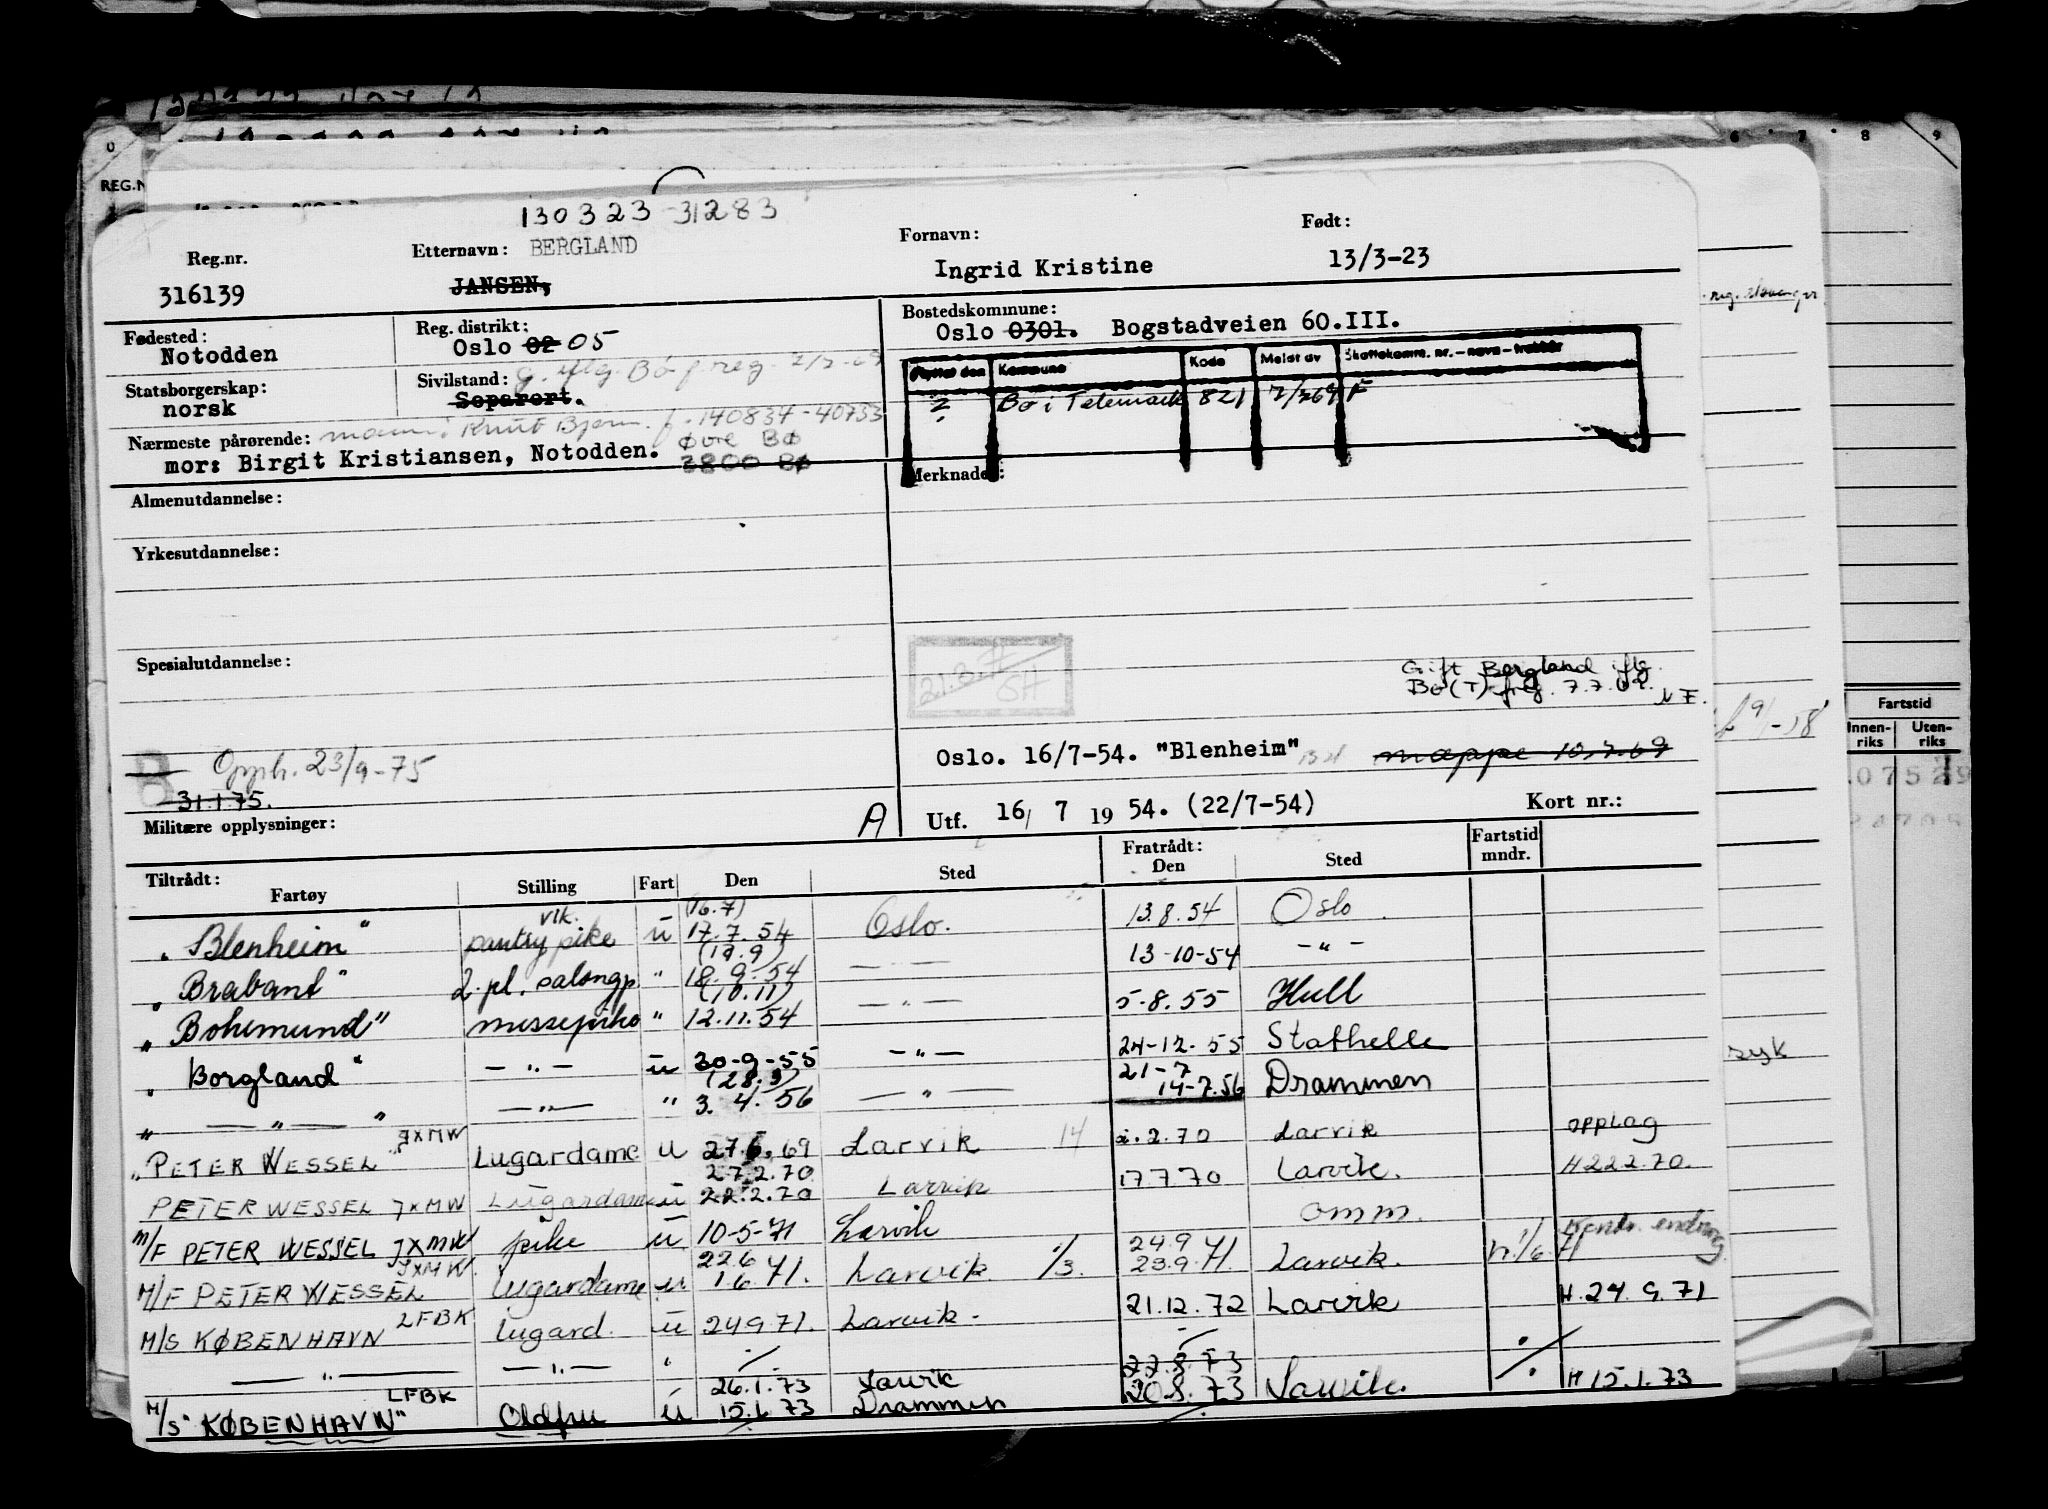 130323-31283
Reg.nr. Etternavn: BERGLAND Fornavn: Født:
316139 JANSEN, Ingrid Kristine 13/3-23
Fødested: Reg. distrikt: Bostedskommune:
Notodden Oslo 02 05 Oslo 0301. Bogstadveien 60.III.
Statsborgerskap: Sivilstand: g. iflg. Bø f.reg.
norsk Separert.
Flyttet den Kommune Kode Meldt av Skattekomm. nr. - navn - trekkår
? Bø i Telemark 821 7/7 69 F
Nærmeste pårørende: mann: Knut Bjørn. f. 140834-40733
mor: Birgit Kristiansen, Notodden. Øvre BØ
3800 BØ
Merknader:
Almenutdannelse:
Yrkesutdannelse:
Spesialutdannelse:
Gift Bergland iflg.
Bø (T) f.reg. 7.7.69. NF.
B Opph. 23/9-75
31.1.75.
Oslo. 16/7-54. "Blenheim" mappe 10.7.69
Militære opplysninger: A Utf. 16/ 7 19 54. (22/7-54) Kort nr.:
Tiltrådt: Fratrådt: Fartstid
Fartøy Stilling Fart Den Sted Den Sted mndr.
"Blenheim" vlk. pantrypike u (16.7) 17.7.54 Oslo. 13.8.54 Oslo
"Brabant" 2.pl. salongp. " (19.9) 18.9.54 — 13-10-54 -"-
"Bohemund" messepike " (10.11) 12.11.54 -"- 5.8.55 Hull
"Borgland" -"- u 30-9-55 -"- 24-12.55 Stathelle
" -"- " -"- " (28.3) 3.4.56 -"- 21-7 14-7.56 Drammen
"PETER WESSEL" JXMW Lugardame u 27.6.69 Larvik 14 2.70 Larvik opplag
PETER WESSEL JXMW Lugardame u 27.2.70 22.2.70 Larvik 17.7.70 Larvik. H 22.2.70.
M/F PETER WESSEL JXMW pike u 10-5-71 Larvik omm.
M/F PETER WESSEL JXMW. Lugardame u 22.6 1.6.71. Larvik 1/3. 24.9 23.9.71. Larvik. 1/6.71 endring
M/S KØBENHAVN LFBK Lugard. u 24.9.71. Larvik. 21.12.72 Larvik H. 24.9.71
-"- -"- "
M/S "KØBENHAVN" LFBK Oldfru u 26.1.73 15.1.73 Larvik Drammen 22.8.73 20.8.73 Larvik. H 15.1.73
REG.N
0
6 7 8 9
Fartstid
Innen-riks Uten-riks
07529
9/1-58
syk